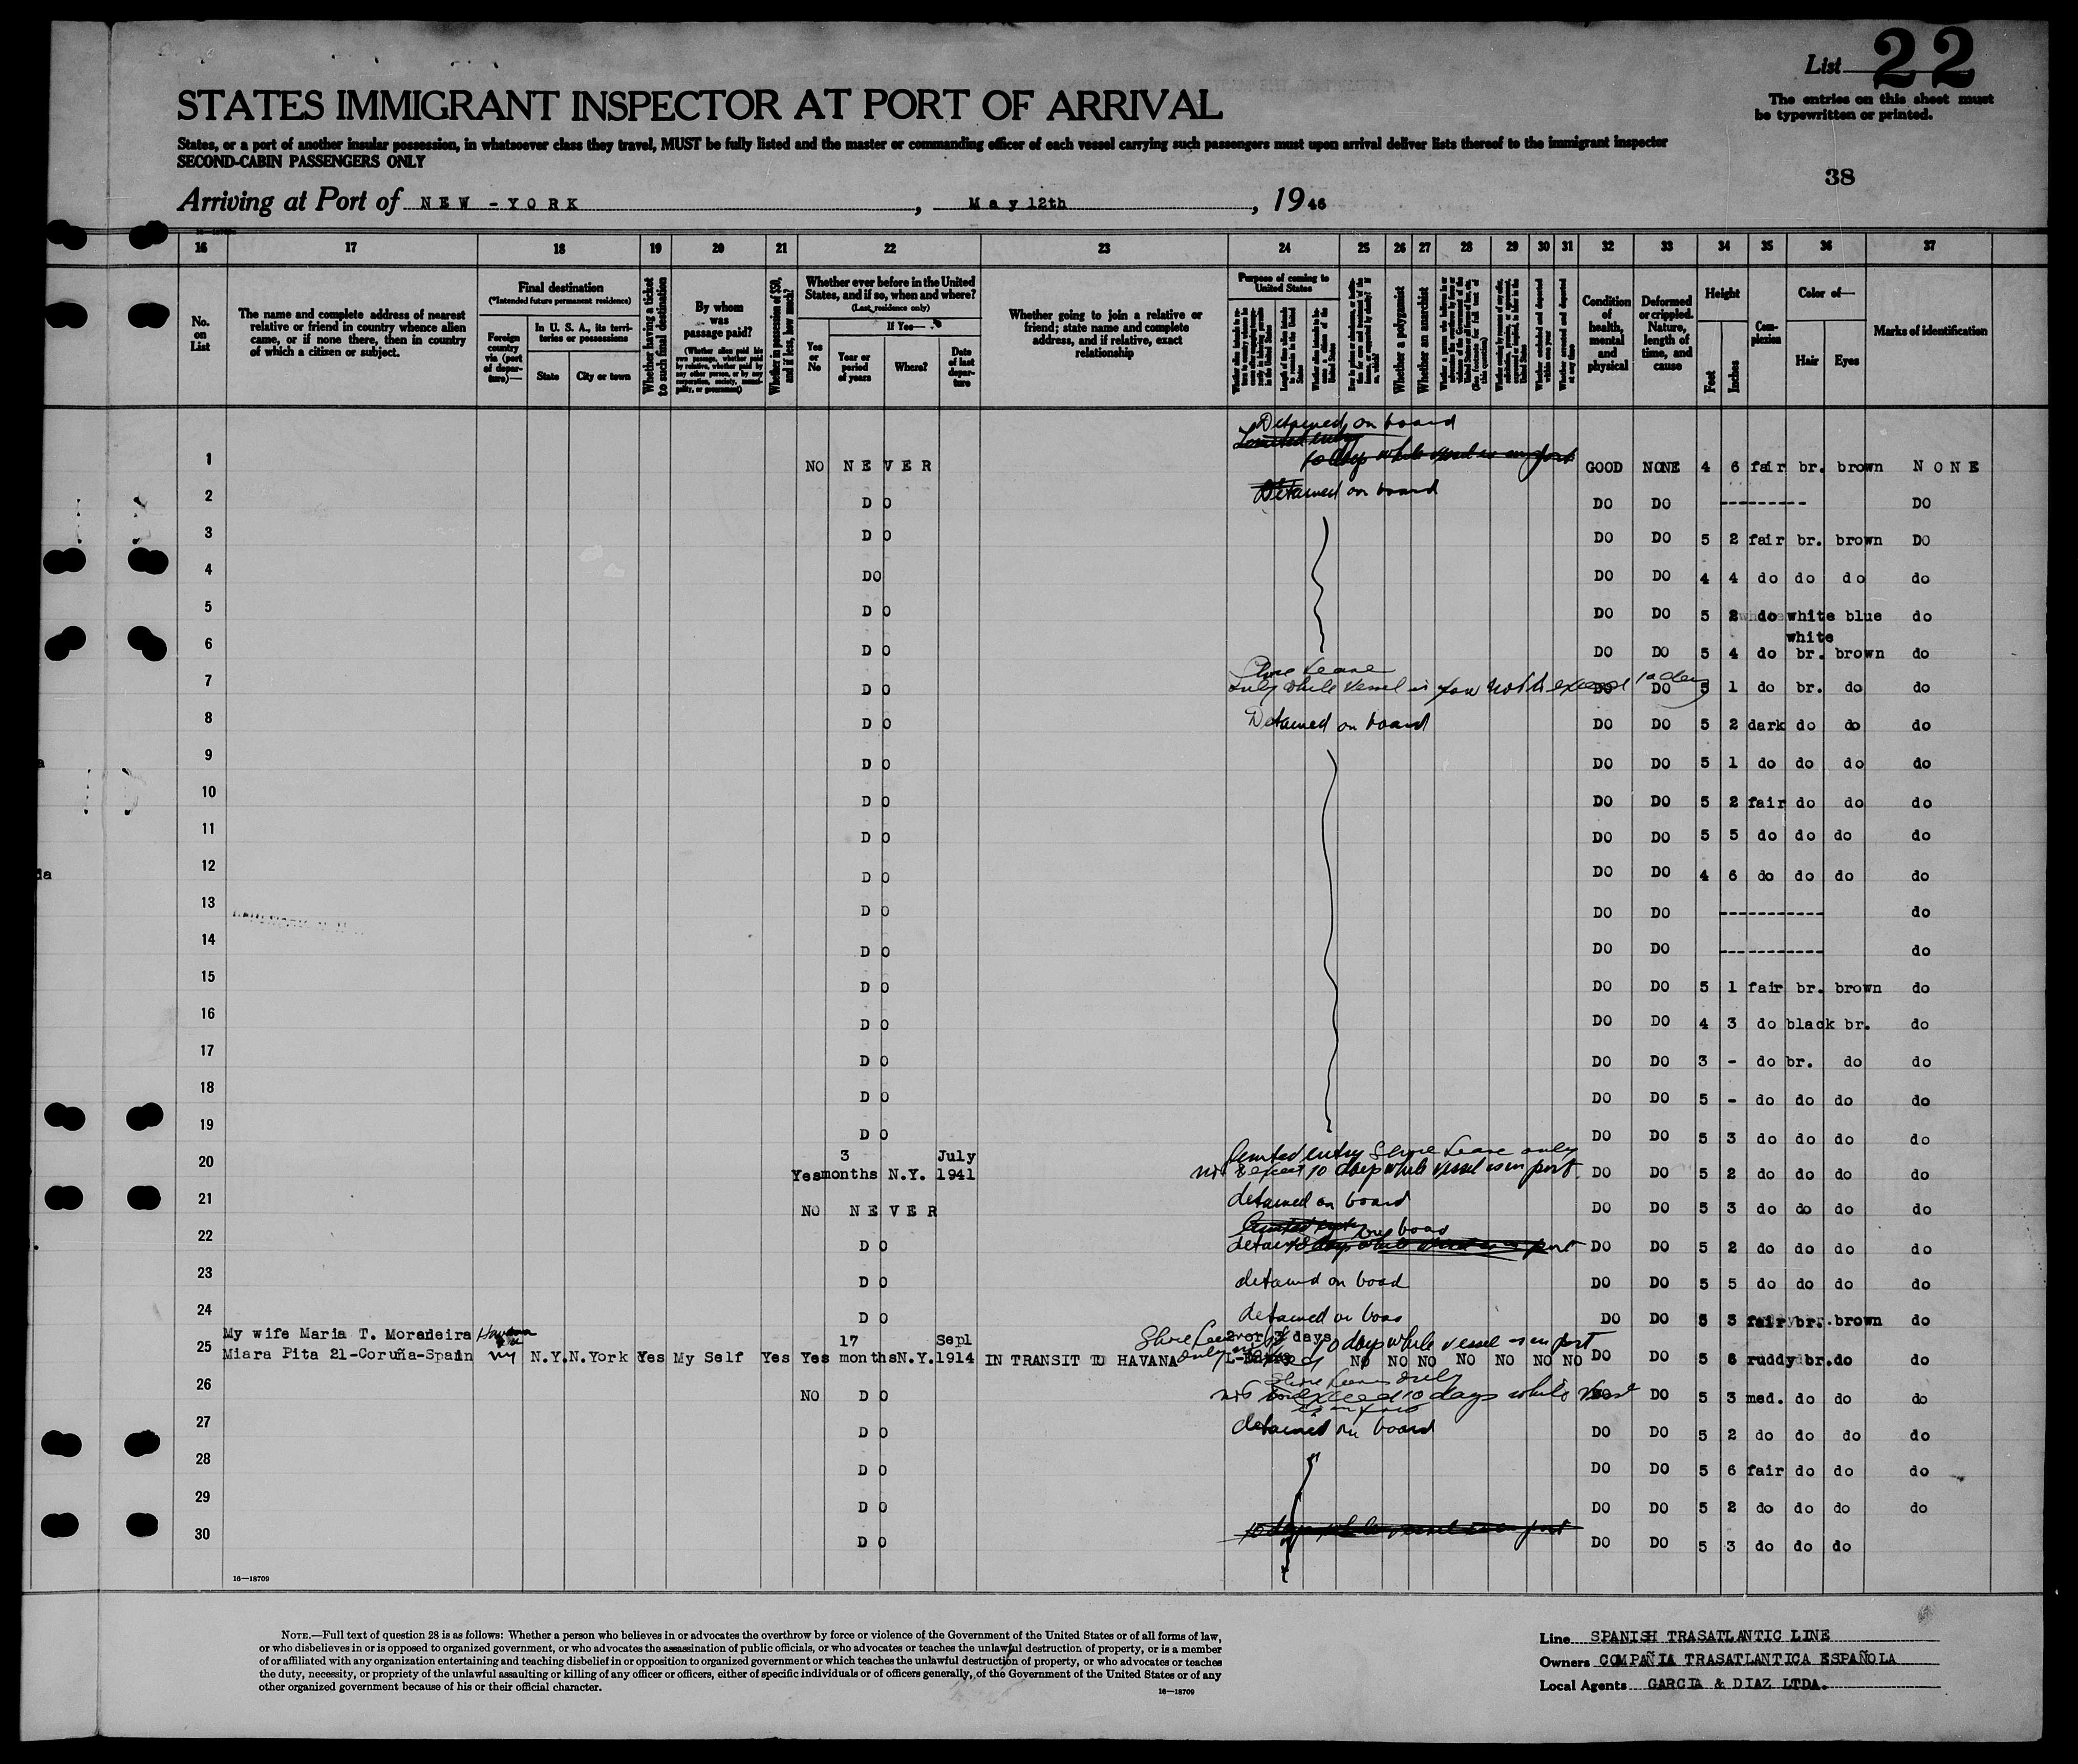 List 22
The entries on this sheet must
be typewritten or printed.
STATES IMMIGRANT INSPECTOR AT PORT OF ARRIVAL
States, or a port of another insular possession, in whatsoever class they travel, MUST be fully listed and the master or commanding officer of each vessel carrying such passengers must upon arrival deliver lists thereof to the immigrant inspector
SECOND-CABIN PASSENGERS ONLY
38
Arriving at Port of NEW-YORK, May 12th, 1946
16 17 18 19 20 21 22 23 24 25 26 27 28 29 30 31 32 33 34 35 36 37
No. on List
The name and complete address of nearest relative or friend in country whence alien came, or if none there, then in country of which a citizen or subject.
Final destination
(*Intended future permanent residence)
Foreign country via (port of departure)—
In U. S. A., its territories or possessions
State
City or town
Whether having a ticket to such final destination
By whom was passage paid?
(Whether alien paid his own passage, whether paid by relative, whether paid by any other person, or by any corporation, society, municipality, or government)
Whether in possession of $50, and if less, how much?
Whether ever before in the United States, and if so, when and where?
(Last residence only)
Yes or No
If Yes—
Year or period of years
Where?
Date of last departure
Whether going to join a relative or friend; state name and complete address, and if relative, exact relationship
Purpose of coming to United States
Whether a polygamist
Whether an anarchist
Condition of health, mental and physical
Deformed or crippled. Nature, length of time, and cause
Height
Feet
Inches
Complexion
Color of—
Hair
Eyes
Marks of identification
Detained on board
1 NO NEVER GOOD NONE 4 6 fair br. brown NONE
2 DO Detained on board DO DO ---------- DO
3 DO DO DO 5 2 fair br. brown DO
4 DO DO DO 4 4 do do do do
5 DO DO DO 5 2 do white blue do
white
6 DO DO DO 5 4 do br. brown do
7 DO only while vessel in DO DO 5 1 do br. do do
8 DO Detained on board DO DO 5 2 dark do do do
9 DO DO DO 5 1 do do do do
10 DO DO DO 5 2 fair do do do
11 DO DO DO 5 5 do do do do
12 DO DO DO 4 6 do do do do
13 DO DO DO ------------ do
14 DO DO DO ------------ do
15 DO DO DO 5 1 fair br. brown do
16 DO DO DO 4 3 do black br. do
17 DO DO DO 3 - do br. do do
18 DO DO DO 5 - do do do do
19 DO DO DO 5 3 do do do do
limited entry Shore Leave only
20 Yes 3 months N.Y. July 1941 not to exceed 10 days while vessel is in port. DO DO 5 2 do do do do
21 NO NEVER detained on board DO DO 5 3 do do do do
22 DO DO DO 5 2 do do do do
23 DO detained on board DO DO 5 5 do do do do
24 DO detained on board DO DO 5 3 fair br. brown do
25 My wife Maria T. Moradeira
Miara Pita 21-Coruña-Spain N.Y. N.York Yes My Self Yes Yes 17 months N.Y. Sepl 1914 IN TRANSIT TO HAVANA 2 or 3 days 10 days while vessel is in port NO NO NO NO NO NO NO DO DO 5 6 ruddy br. do do
Shore Leave only
26 NO DO not to exceed 10 days while DO 5 3 med. do do do
27 DO detained on board DO DO 5 2 do do do do
28 DO DO DO 5 6 fair do do do
29 DO DO DO 5 2 do do do do
30 DO DO DO 5 3 do do do
16—18709
NOTE.—Full text of question 28 is as follows: Whether a person who believes in or advocates the overthrow by force or violence of the Government of the United States or of all forms of law,
or who disbelieves in or is opposed to organized government, or who advocates the assassination of public officials, or who advocates or teaches the unlawful destruction of property, or is a member
of or affiliated with any organization entertaining and teaching disbelief in or opposition to organized government or which teaches the unlawful destruction of property, or who advocates or teaches
the duty, necessity, or propriety of the unlawful assaulting or killing of any officer or officers, either of specific individuals or of officers generally, of the Government of the United States or of any
other organized government because of his or their official character.
16—18709
Line SPANISH TRASATLANTIC LINE
Owners COMPAÑIA TRASATLANTICA ESPAÑOLA
Local Agents GARCIA & DIAZ LTDA.